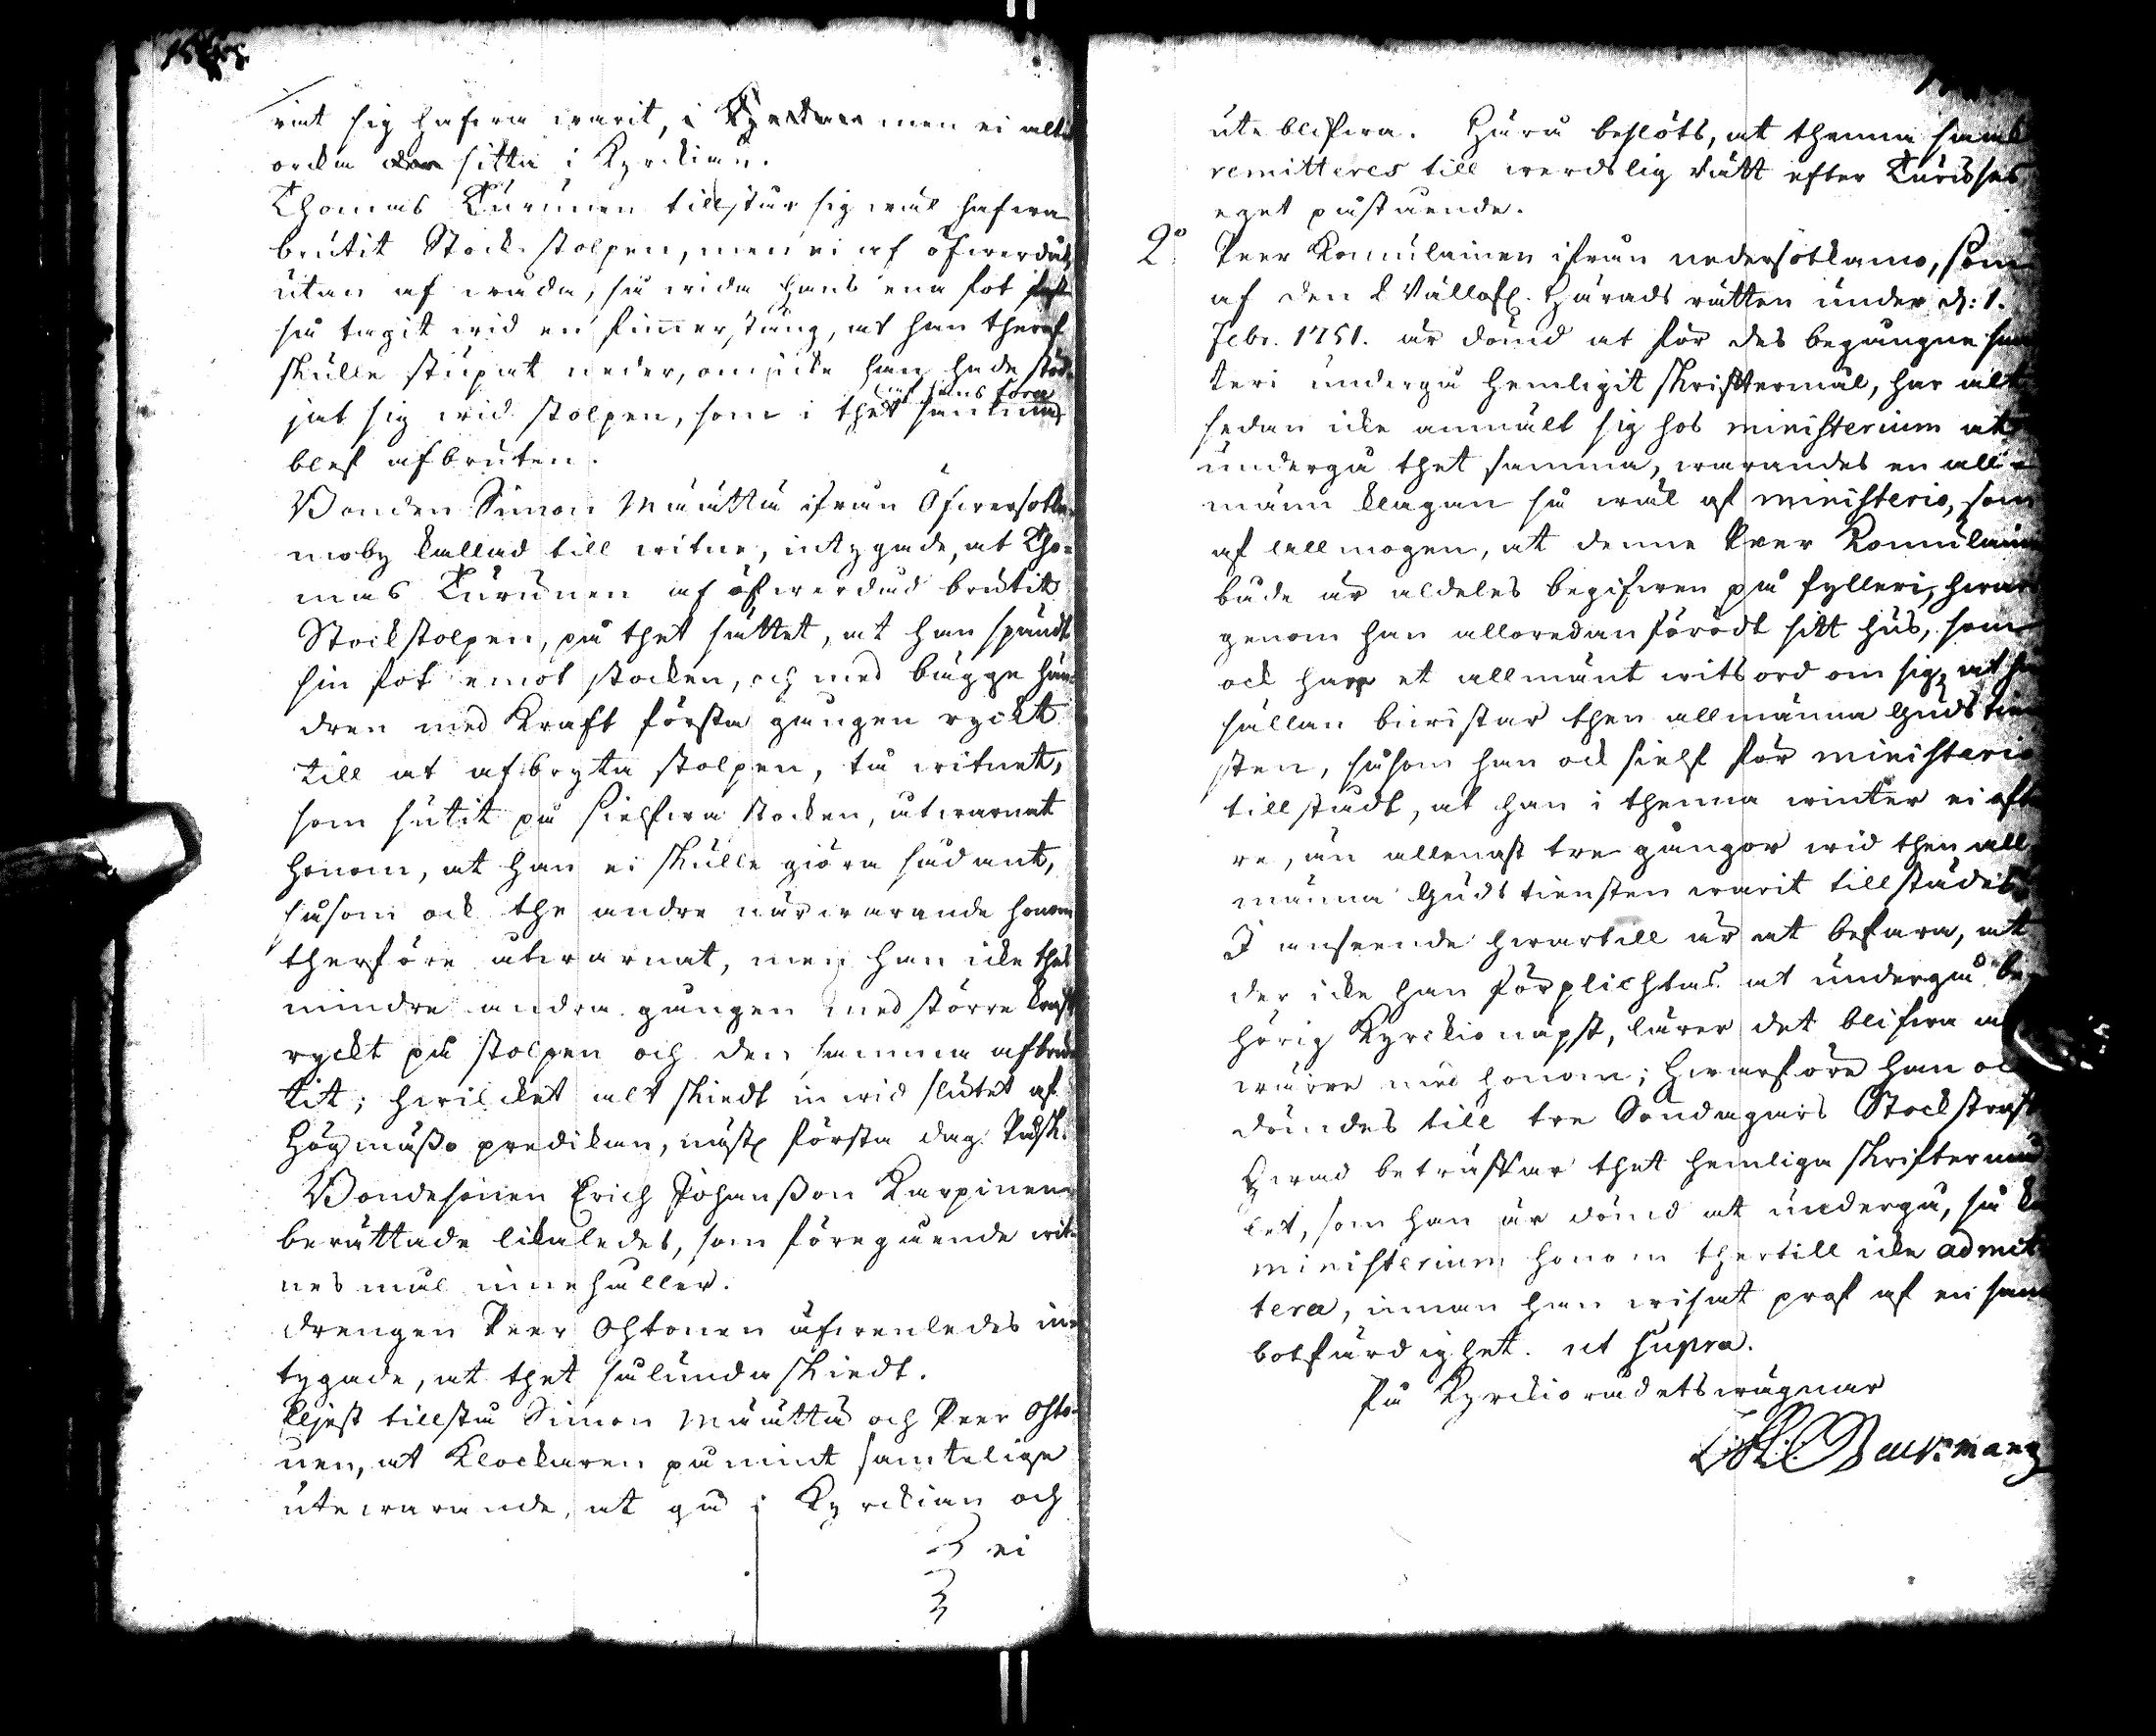 rit sig hafwa warit, i Kyrkan men ei altid
orcka sitta i Kyrckian.
Thomas Turunen tillstår sig wäl hafwa
brutit Stockstolpen, men ei af öfwerdåd,
utan af wåda, så wida hans ena fot
så tagit wid en timerstång, at han theraf
skulle stupat neder, om icke han hade stöd-
af hans före
jat sig wid stolpen, som i thet samma
blef afbruten.
Bonden Simon Määttä ifrån Öfwersotka-
moby kallad till witne, intygade, at Tho-
mas Turunen af öfwerdåd brutit
Stockstolpen, på thet sättet, at han spändt
sin fot emot stocken, och med bägge hän-
dren med Kraft första gången ryckt
till at afbryta stolpen, tå witnet,
som sutit på sielfwa stocken, utwarnat
honom, at han ei skulle giöra sådant,
såsom ock the andre närwarande honom
therföre utwarnat, men han icke thes
mindre andra gången med större kraft
ryckt på stolpen och den samma afbru-
tit; hwilcket alt skiedt in wid slutet af
Högmässo predikan, näst första dag Påsk.
Bondesonen Erich Johansson Karpinen
berättade likaledes, som föregående wit-
nesmål innehåller.
drengen Peer Ohtonen äfwenledes in-
tygade, at thet sålunda skiedt.
Eljest tillstå Simon Määttä och Peer Ohto-
nen, at Klockaren påmint samtelige
utewarande, at gå i Kyrckian och
ei
uteblifwa. Häru beslöts, at thenna sak
remitteres till werdslig rätt efter Turuses
eget påstående.
2° Peer Komulainen ifrån nedersotkamo, som
af den Vällofl. Härads rätten under d: 1.
Febr. 1751. är dömd at för des begångne
teri undergå hemligit skriftermål, har alt
sedan icke anmält sig hos ministerium at
undergå thet samma, warandes en all-
männ klagan så wäl af ministerio, som
af allmogen, at denne Peer Komulainen
både är aldeles begifwen på fylleri, hwar
genom han alloredan förödt sitt hus, som
ock har et allmänt witsord om sig, at han
sällan biwistar then allmänna Gudstien-
sten, såsom han ock sielf för ministerio
tillstådt, at han i thenna winter ei ofta-
re, än allenast tre gångor wid then all-
männa Gudstiensten warit tillstädes.
I anseende hwartill är at befara, at
der icke han förplichtas at undergå be-
hörig Kyrckionäpst, lärer det blifwa
wärre med honom; Hwarföre han ock
dömdes till tre Söndagars Stockstraf
Hwad beträffar thet hemliga skriftermå-
let, som han är dömd at undergå, så
ministerium honom thertill icke admit-
tera, innan han wisat prof af en sann
botfärdighet. ut supra.
På Kyrckiorådets wägnar
Backman